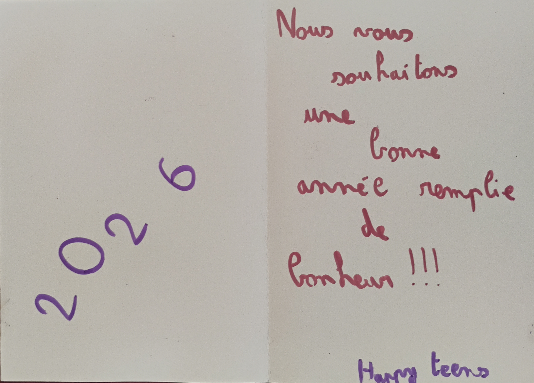 2026
Nous vous
souhaitons
une
bonne
année remplie
de
bonheur !!!
Happy teens